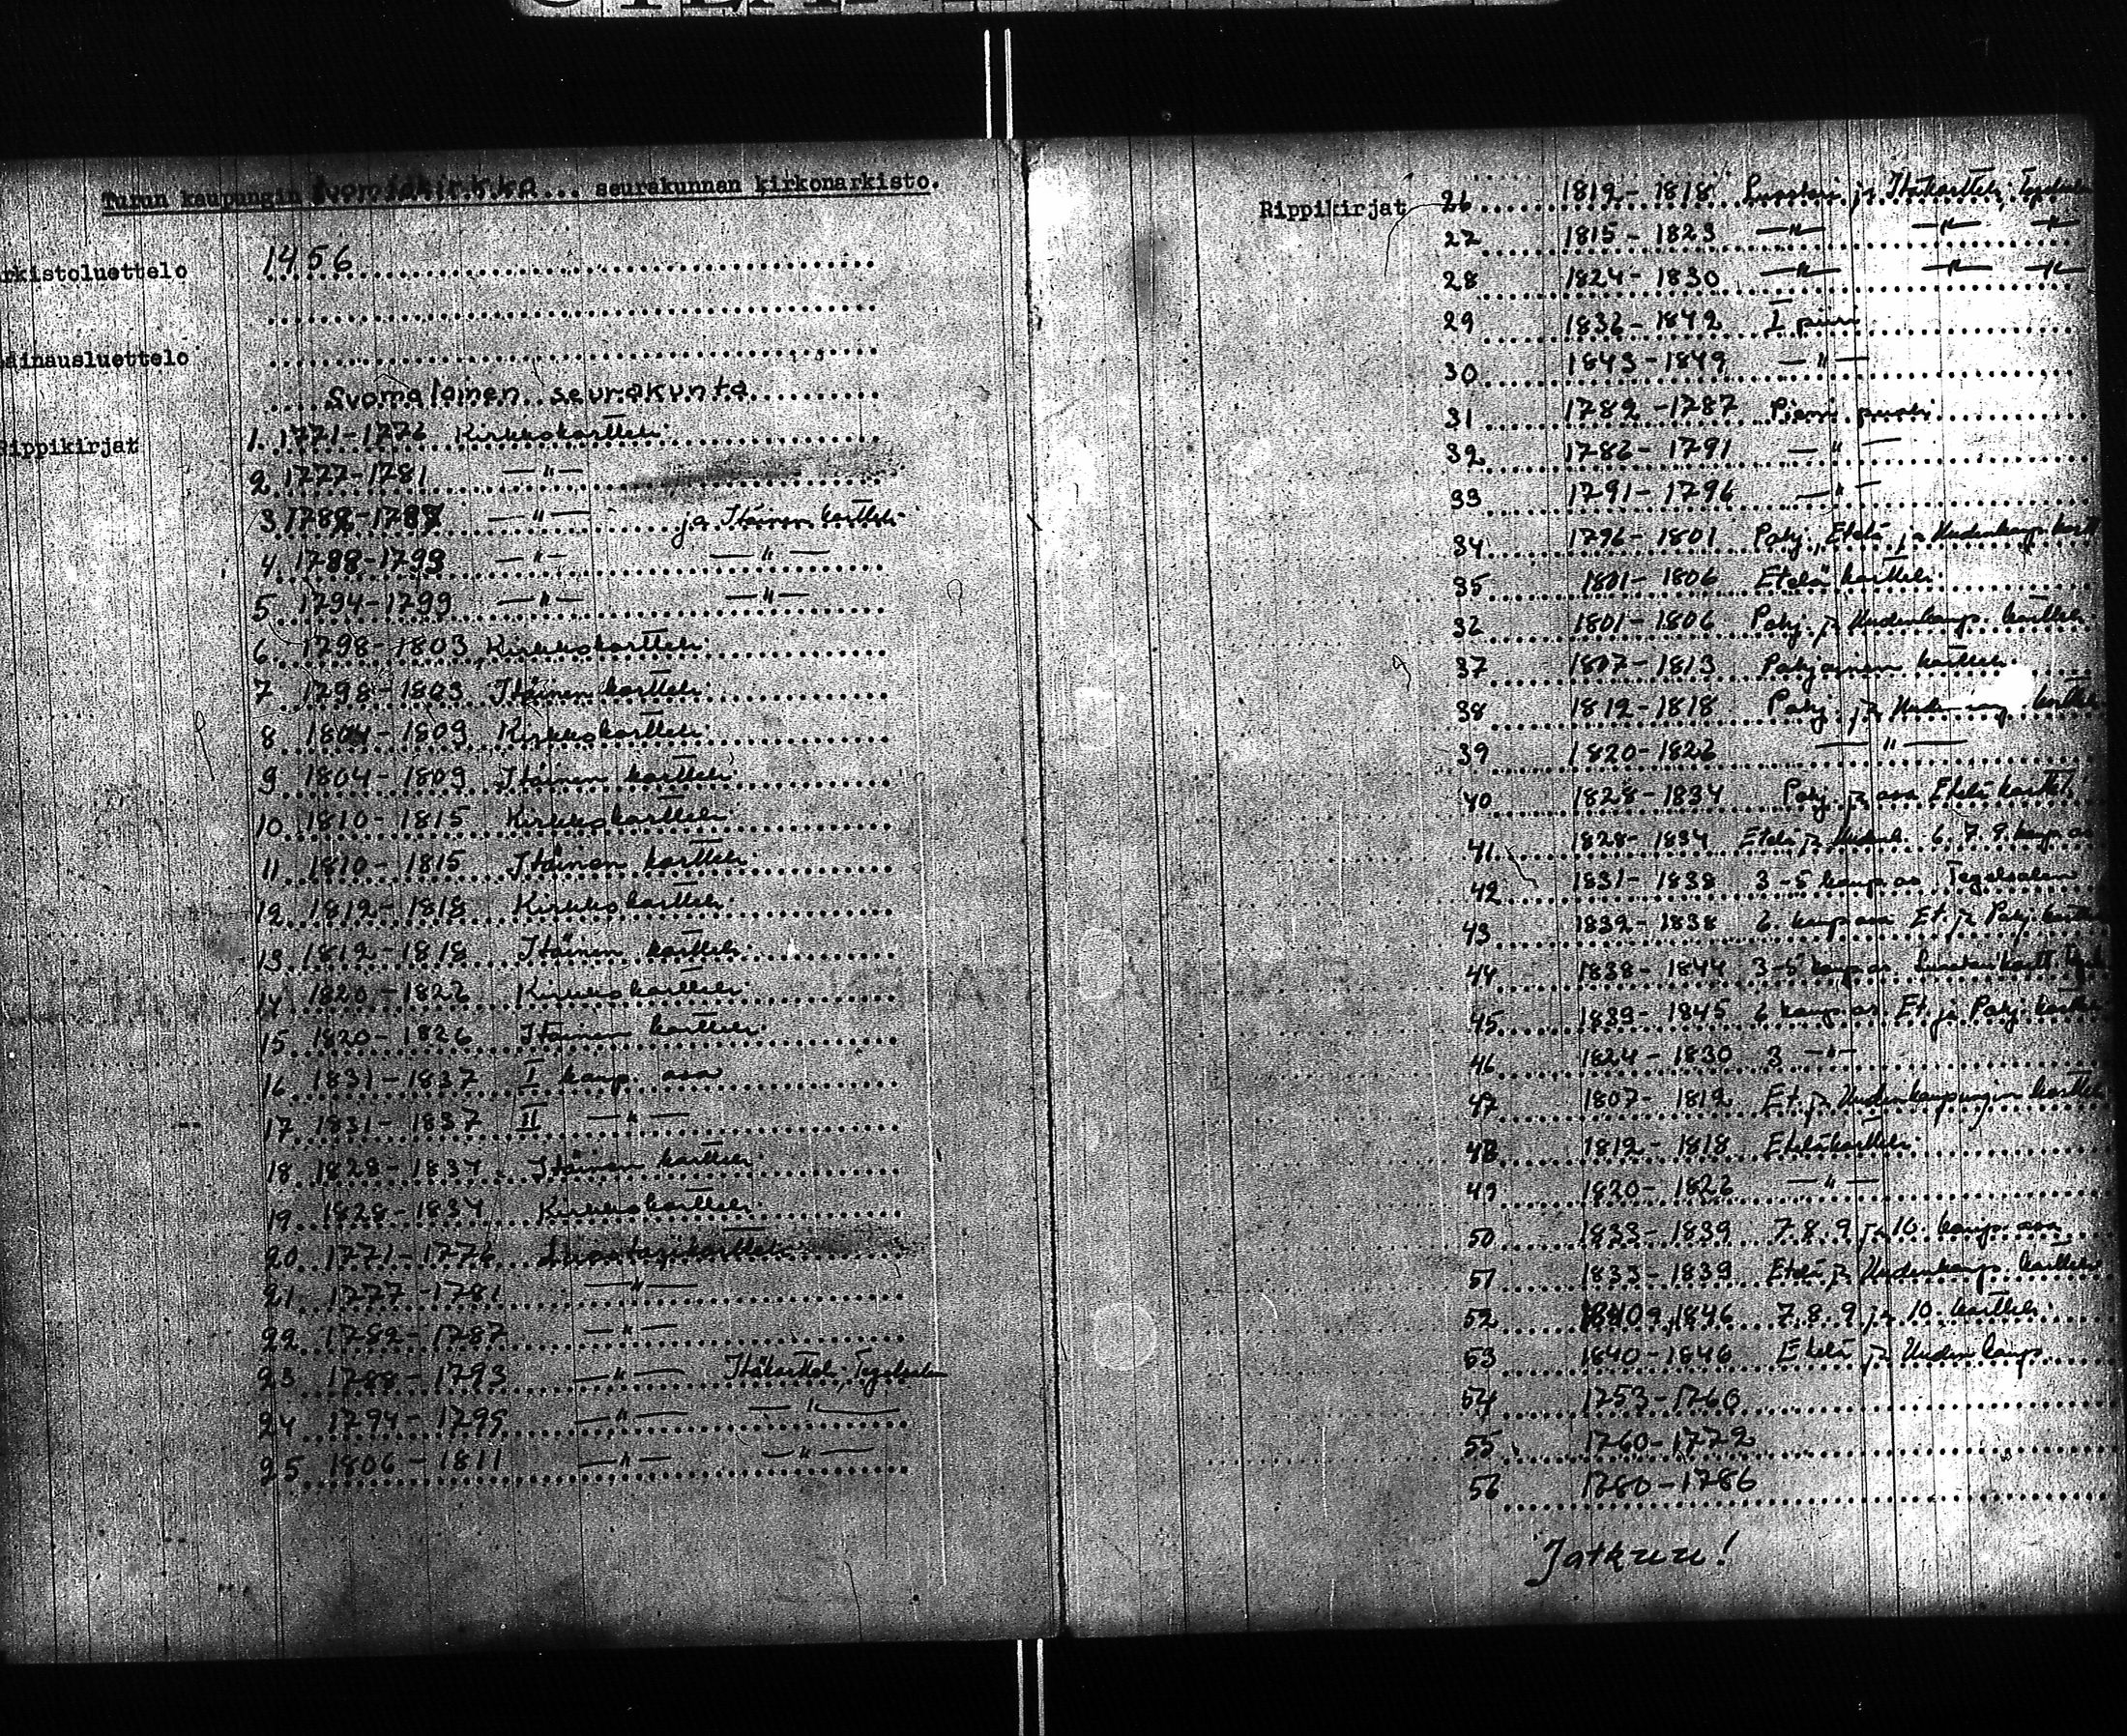 Turun kaupungin ... seurakunnan kirkonarkisto.
rkistoluettelo 1456
ainausluettelo
Suomalainen seurakunta
Rippikirjat 1. 1771-1776 Kirkkokortteli
2 1777-1781 —"—
3 1782-1787 —"— ja Itäinen kortteli
4. 1788-1793 —"— —"—
5 1794-1799 —"— —"—
6. 1798-1803 Kirkkokortteli
7 1798-1803 Itäinen kortteli
8 1804-1809 Kirkkokortteli
9 1804-1809 Itäinen kortteli
10 1810-1815 Kirkkokortteli
11 1810-1815 Itäinen kortteli
12 1812-1818 Kirkkokortteli
13 1812-1818 Itäinen kortteli
14 1820-1822 Kirkkokortteli
15 1820-1826 Itäinen kortteli
16 1831-1837 I kaup. osa
17 1831-1837 II —"—
18 1828-1834 Itäinen kortteli
19 1828-1834 Kirkkokortteli
20 1771-1776 Luostarikortteli
21 1777-1781 —"—
22 1782-1787 —"—
23 1788-1793 —"— Itäkortteli, Tegelsalen
24 1794-1799 —"— —"—
25 1806-1811 —"— —"—
Rippikirjat 26 1812-1818 Luostari ja Itäkortteli
27 1815-1823 —"— —"— —"—
28 1824-1830 —"— —"— —"—
29 1836-1842 I piiri
30 1843-1849 —"—
31 1782-1787 Pieni puoli
32 1786-1791 —"—
33 1791-1796 —"—
34 1796-1801 Pohj., Etelä ja Uudenkaup kortt
35 1801-1806 Eteläkortteli
32 1801-1806 Pohj. ja Uudenkaup. kortteli
37 1807-1813 Pohjoinen kortteli
38 1812-1818 Pohj. ja
39 1820-1826 —"—
40 1828-1834 Pohj. ja osa Etelä kortteli
41 1828-1834 Etelä ja 6. 7. 9. kaup os
42 1831-1838 3-5 kaup os Tegelsalen
43 1832-1838 6. kaup osa Et. ja Pohj. kortteli
44 1838-1844 3-5 kaup os.
45 1839-1845 6 kaup os Et. ja Pohj. kortteli
46 1824-1830 3 —"—
47 1807-1812 Et. ja Uudenkaupungin kortteli
48 1812-1818 Eteläkortteli
49 1820-1826 —"—
50 1833-1839 7.8.9 ja 10. kaup. osa
51 1833-1839 Etelä ja Uudenkaup. kortteli
52 1846 7.8.9 ja 10. kortteli
53 1840-1846 Etelä ja Uudenkaup
54 1753-1760
55 1760-1772
56 1780-1786
Jatkuu!